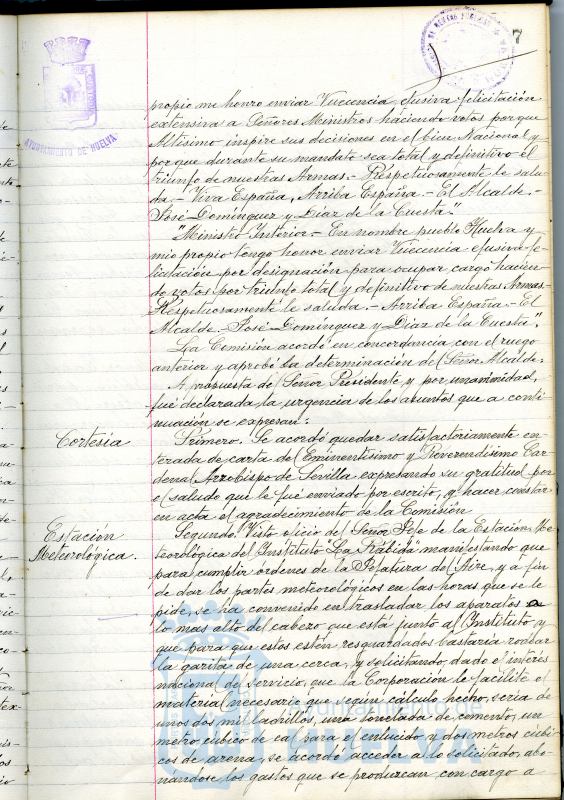 7
AYUNTAMIENTO DE HUELVA
propio me honro enviar Vuecencia, efusiva felicitación
extensiva a Señores Ministros haciendo votos porque
Altísimo inspire sus decisiones en el bien Nacional y
porque durante su mandato sea total y definitivo el
triunfo de nuestras Armas.- Respetuosamente le salu-
da.- Viva España, Arriba España.- El Alcalde.-
José Domínguez y Díaz de la Cuesta."
"Ministro Interior.- En nombre pueblo Huelva y
mio propio tengo honor enviar Vuecencia efusiva fe-
licitación por designación para ocupar cargo hacien-
do votos por triunfo total y definitivo de nuestras Armas.-
Respetuosamente le saluda.- Arriba España.- El
Alcalde.- José Domínguez y Díaz de la Cuesta".
La Comisión acordó en concordancia con el ruego
anterior y aprobó la determinación del Señor Alcalde.
A propuesta del Señor Presidente y por unanimidad,
fué declarada la urgencia de los asuntos que a conti-
nuación se expresan:
Cortesía
Primero. Se acordó quedar satisfactoriamente en-
terada de carta del Eminentísimo y Reverendísimo Car-
denal Arzobispo de Sevilla expresando su gratitud por
el saludo que le fué enviado por escrito, y hacer constar
en acta el agradecimiento de la Comisión
Estación
Meteorológica.
Segundo. Visto oficio del Señor Jefe de la Estación Me-
teorológica del Instituto "La Rábida" manifestando que
para cumplir ordenes de la Jefatura del Aire, y a fin
de dar los partes meteorológicos en las horas que se le
pide, se ha convenido en trasladar los aparatos a
lo mas alto del cabezo que está junto al Instituto y
que para que estos estén resguardados bastaría rodear
la garita de una cerca, y solicitando, dado el interés
nacional del servicio, que la Corporación le facilite el
material necesario que según cálculo hecho, sería de
unos dos mil ladrillos, una tonelada de cemento, un
metro cúbico de cal para el enlucido y dos metros cúbi-
cos de arena, se acordó acceder a lo solicitado, abo-
nándose los gastos que se produzcan con cargo a